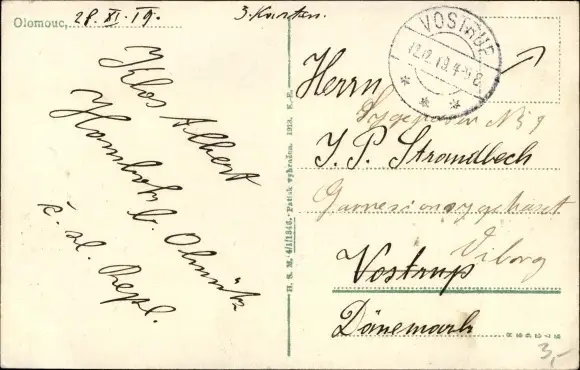 Olomouc, 28. XI. 19.
3. Karten.
Klos Albert
Hombok b. Olmütz
č. sl. Repl.
H. S. M. 4/1/1846. - Patisk vyhrazen. 1918. K.-E.
VOSTRUP
12.12.19. 4-9 E
Herrn
Sygeposten No 9
J. P. Strandbech
Garnisonssygehuset
Viborg
Vostrup
Dänemark
3,-